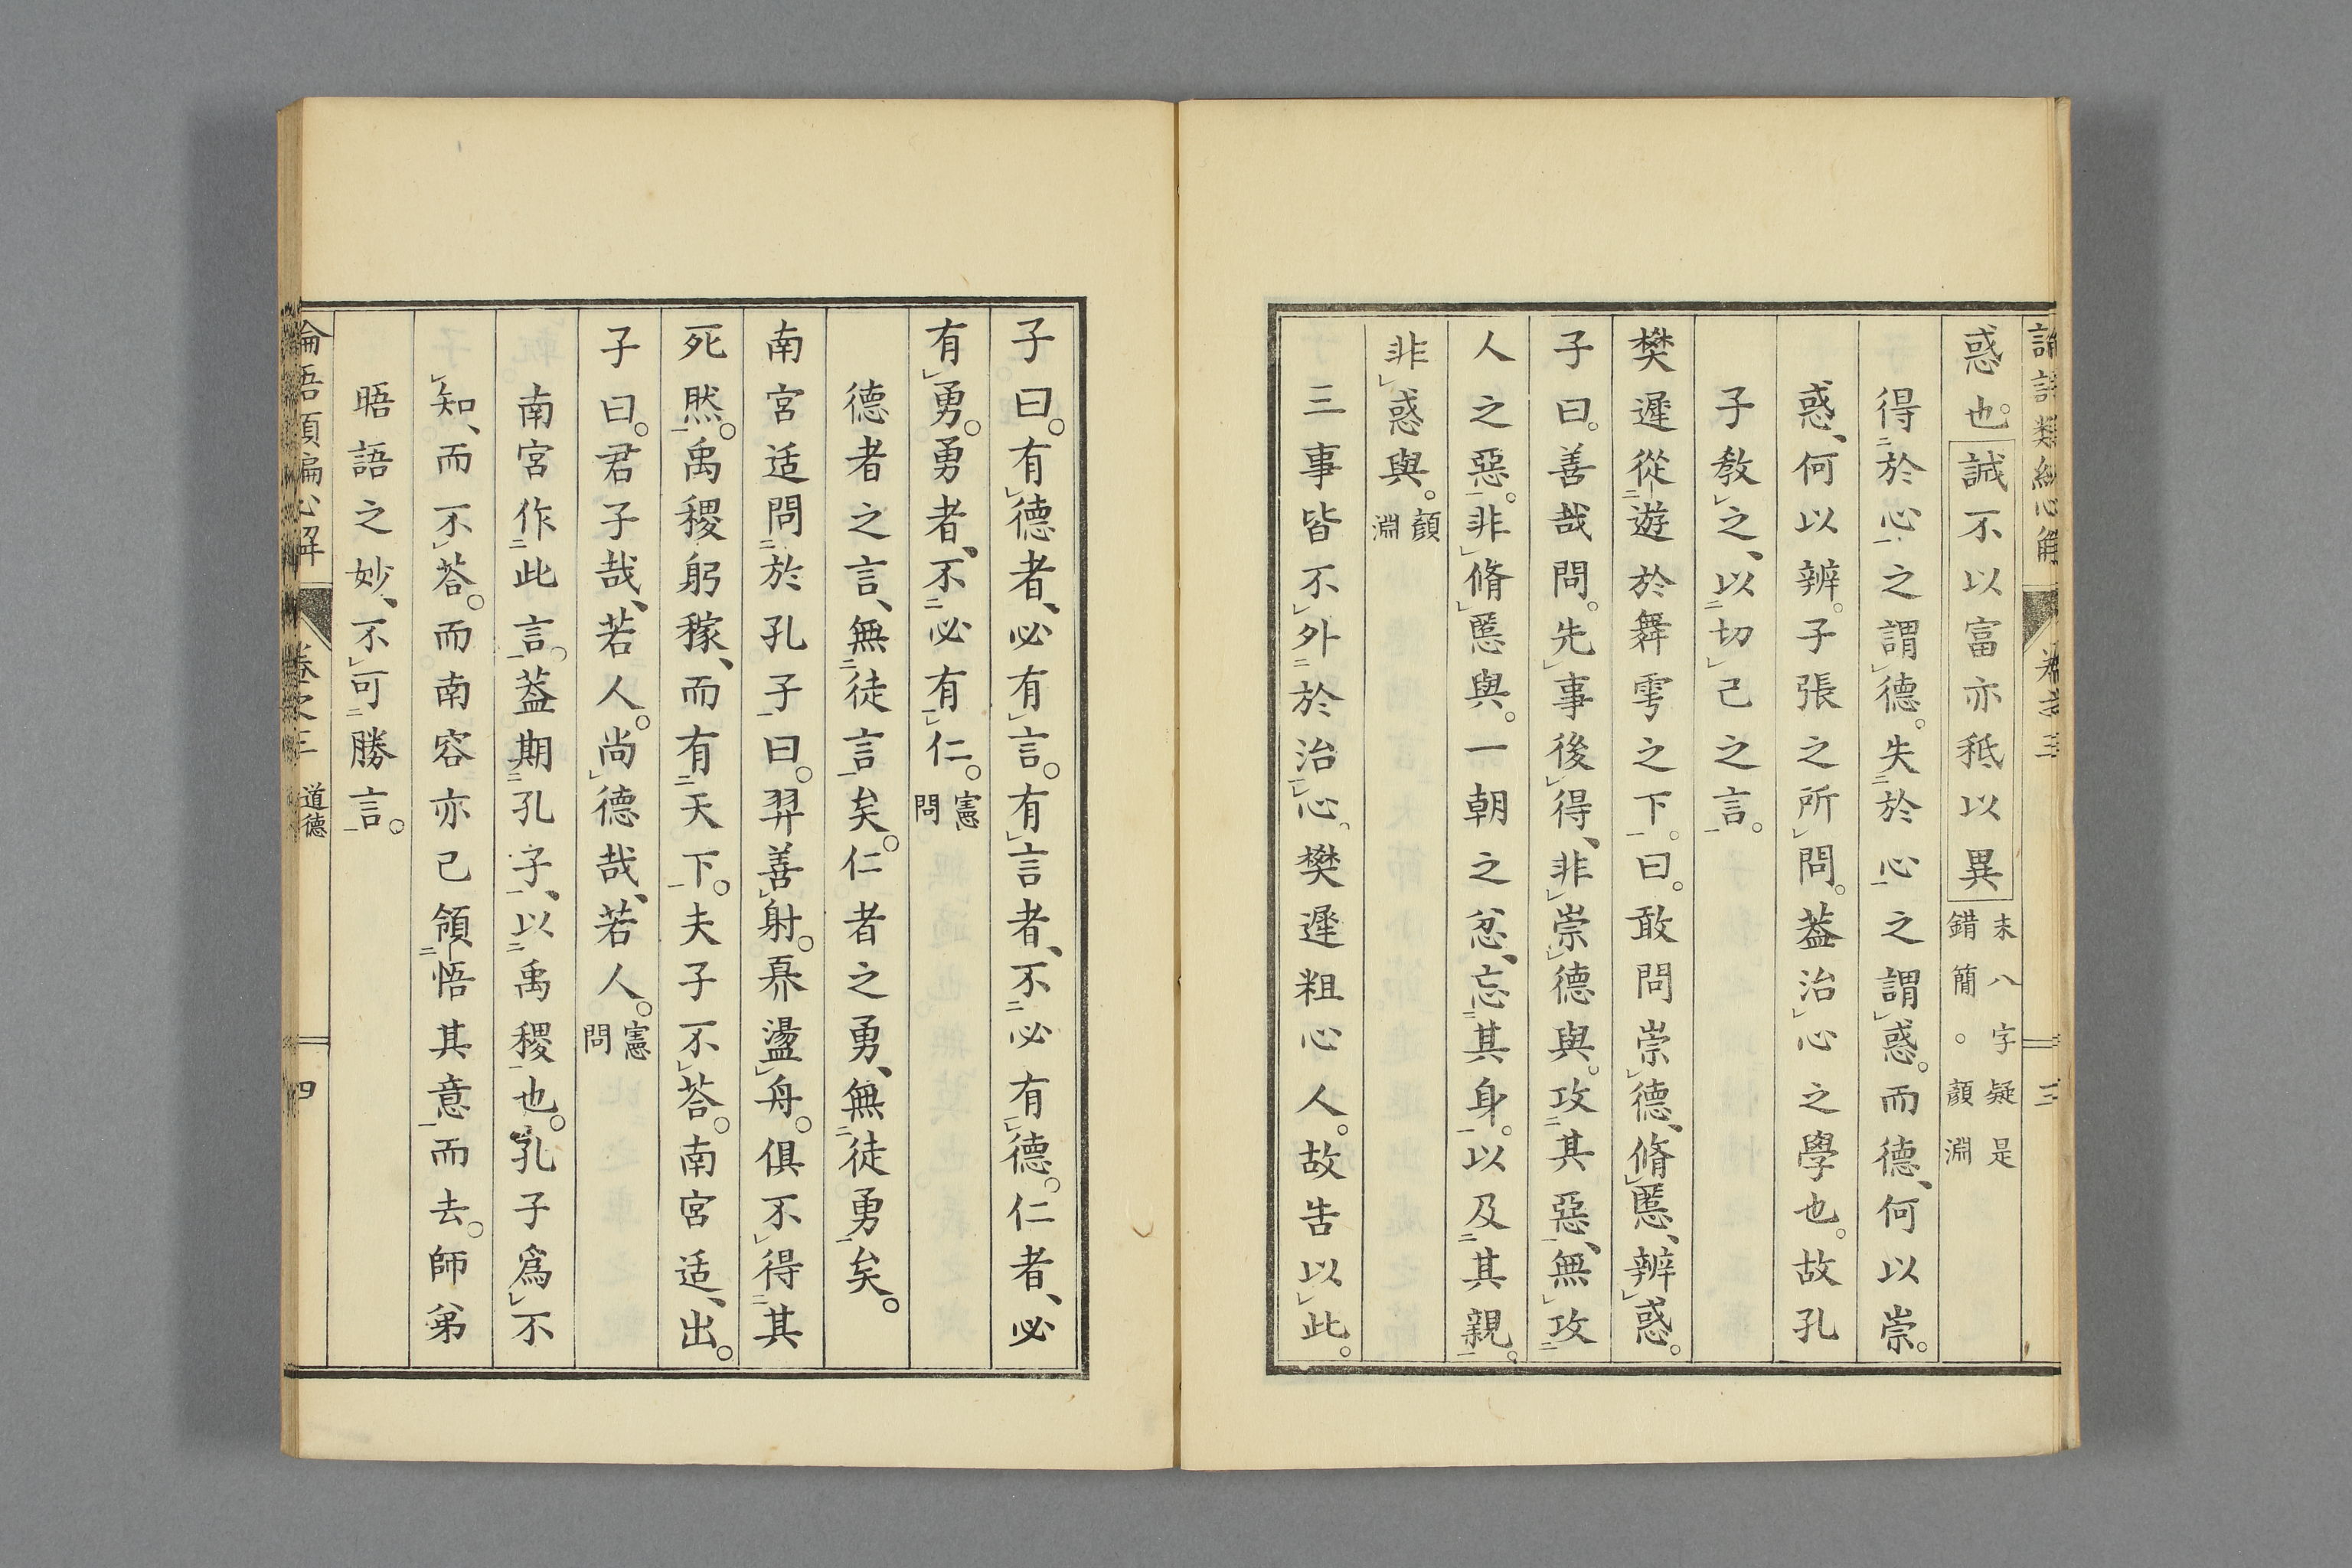 惑也。誠不以富亦秪以異末八字疑是錯簡。顔淵
得於心之謂德。失於心之謂惑。而德、何以崇。
惑、何以辨。子張之所問。葢治心之學也。故孔
子教之、以切己之言。
樊遲從遊於舞雩之下。曰。敢問崇德、脩慝、辨惑。
子曰。善哉問。先事後得、非崇德與。攻其惡、無攻
人之惡。非脩慝與。一朝之忿、忘其身。以及其親。
非惑與。顔淵
三事皆不外於治心。樊遲粗心人。故告以此。
子曰。有德者、必有言。有言者、不必有德。仁者、必
有勇。勇者、不必有仁。憲問
德者之言、無徒言矣。仁者之勇、無徒勇矣。
南宮适問於孔子曰。羿善射。奡盪舟。俱不得其
死然。禹稷躬稼、而有天下。夫子不荅。南宮适、出。
子曰。君子哉、若人。尚德哉、若人。憲問
南宮作此言。葢期孔子、以禹稷也。孔子爲不
知、而不荅。而南容亦已領悟其意而去。師弟
晤語之妙、不可勝言。
卷之三 道德
四